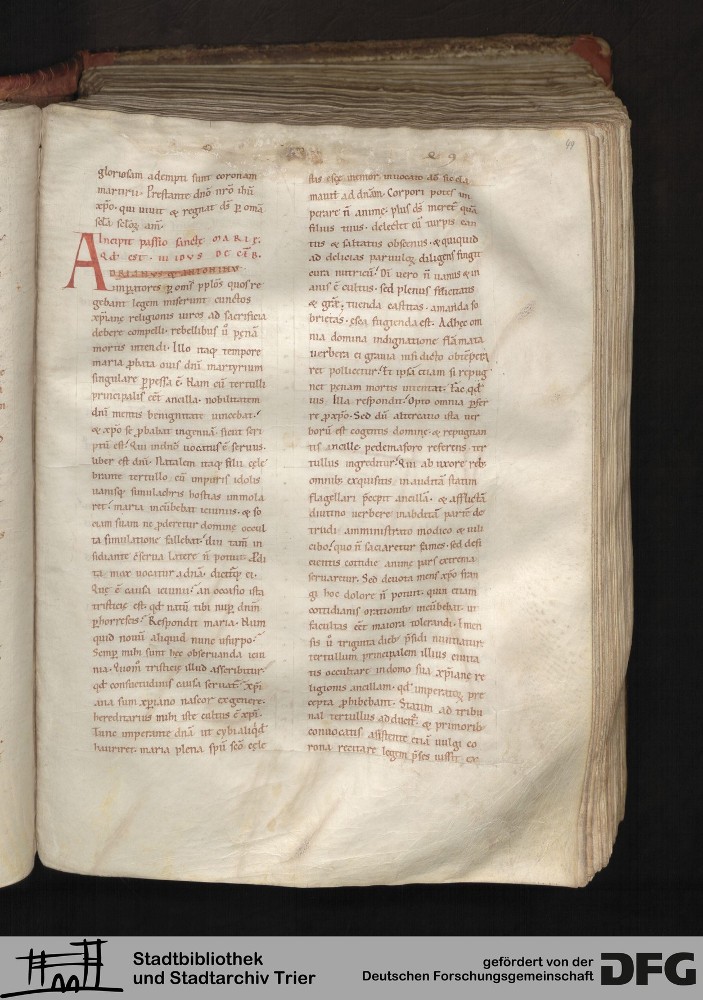 gloriosam adempti sunt coronam
martirii. Prestante dnō nrō ihū
xp̄o. qui uiuit & regnat ds̄ ꝑ om̄ia
scla scloꝝ am̄.
Incipit passio sancte MARIE.
Qd̄ EST. III IDVS DECEB̄.
ADRIANVS & ANTONINVS
imꝑatores ꝑ om̄s pplōs quos re
gebant legem miserunt cunctos
xp̄iane religionis uiros ad sacrificia
debere compelli. rebellibus ū pęnā
mortis intendi. Illo itaq; tempore
maria ꝓbata ouis dnī martyrium
singulare ꝑpessa ē. Nam cū tertulli
principalis eēt ancilla. nobilitatem
dnī mentis benignitate uincebat.
& xp̄o se ꝓbabat ingenuā. sicut scri
ptū est. Qui in dnō uocatus ē seruus.
liber est dnī. Natalem itaq; filii cele
brante tertullo. cū impuris idolis
uanisq; simulachris hostias immola
ret. maria incūbebat ieiuniis. & so
ciam suam ne ꝓderetur domine occul
ta simulatione fallebat. diu tam̄ in
sidiante cserua latere n̄ potuit. Pdi
ta mox uocatur a dnā. dictūq; ei.
Quę ē causa ieiunii? an occasio ista
tristicię est. qd̄ natū tibi nup dnm̄
ꝑhorrescis? Respondit maria. Num
quid nouū aliquid nunc usurpo?
Semp mihi sunt hęc obseruanda ieiu
nia. Quom̄ tristicię illud asscribitur.
qd̄ consuetudinis causa seruat? Xp̄i
ana sum xp̄iano nascor ex genere.
hereditarius mihi iste cultus ē xp̄i.
Tunc imperante dnā ut cybi aliqd̄
hauriret. maria plena spū scō cęle
stas escę memor inuocato ad se cla
mauit ad dnām. Corpori potes im
perare n̄ animę. plus ds̄ meret quā
filius tuus. delectet eū turpis can
tus & saltatus obscenus. & quicquid
ad delicias paruulę diligens fingit
cura nutricū. Di uero n̄ uanus & in
anis ē cultus. sed plenus felicitatis
& grā. tuenda castitas. amanda so
brietas. esca fugienda est. Ad hęc om
nia domina indignatione flāmata
uerbera ei grauia nisi dicto obtēpera
ret pollicetur. Et ipsā etiam si repug
net pęnam mortis intentat. Fac qd̄
uis. Illa respondit. Opto omnia ꝑfer
re ꝓ xp̄o. Sed dū altercatio ista uer
borū est cogentis dominę. & repugnan
tis ancillę. pedem a foro referens ter
tullus ingreditur. Qui ab uxore reb;
omnib; exquisitis. inaudita statim
flagellari p̄cepit ancillā. & afflictā
diutino uerbere in abditā partē de
trudi amministrato modico & uili
cibo. quo n̄ saciaretur fames. sed defi
cientis cotidie animę pars extrema
seruaretur. Sed deuota mens xp̄o fran
gi hoc dolore n̄ potuit. quin etiam
cottidianis orationib; incūbebat. ut
facultas eēt maiora tolerandi. Emen
sis ū triginta dieb; p̄sidi nuntiatur
tertullum principalem illius ciuita
tis occultare in domo sua xp̄iane re
ligionis ancillam. qd̄ imperatoꝝ pre
cepta ꝓhibebant. Statim ad tribu
nal tertullus adducit̄. & primorib;
conuocatis assistente etiā uulgi co
rona recitare legem p̄ses iussit. ex
49
Stadtbibliothek
und Stadtarchiv Trier
gefördert von der
Deutschen Forschungsgemeinschaft
DFG